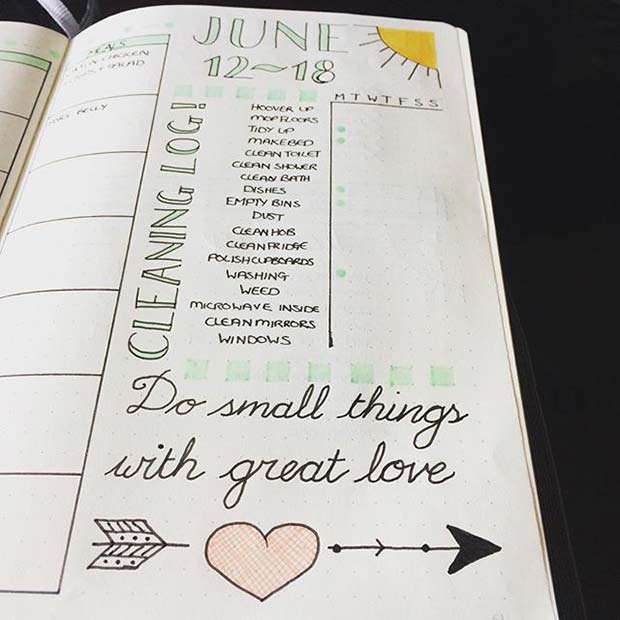 JUNE
12~18
MTWTFSS
CLEANING LOG!
HOOVER UP
MOP FLOORS
TIDY UP
MAKE BED
CLEAN TOILET
CLEAN SHOWER
CLEAN BATH
DISHES
EMPTY BINS
DUST
CLEAN HOB
CLEAN FRIDGE
POLISH CUPBOARDS
WASHING
WEED
MICROWAVE INSIDE
CLEAN MIRRORS
WINDOWS
Do small things
with great love
CHICKEN
SALAD
BELLY